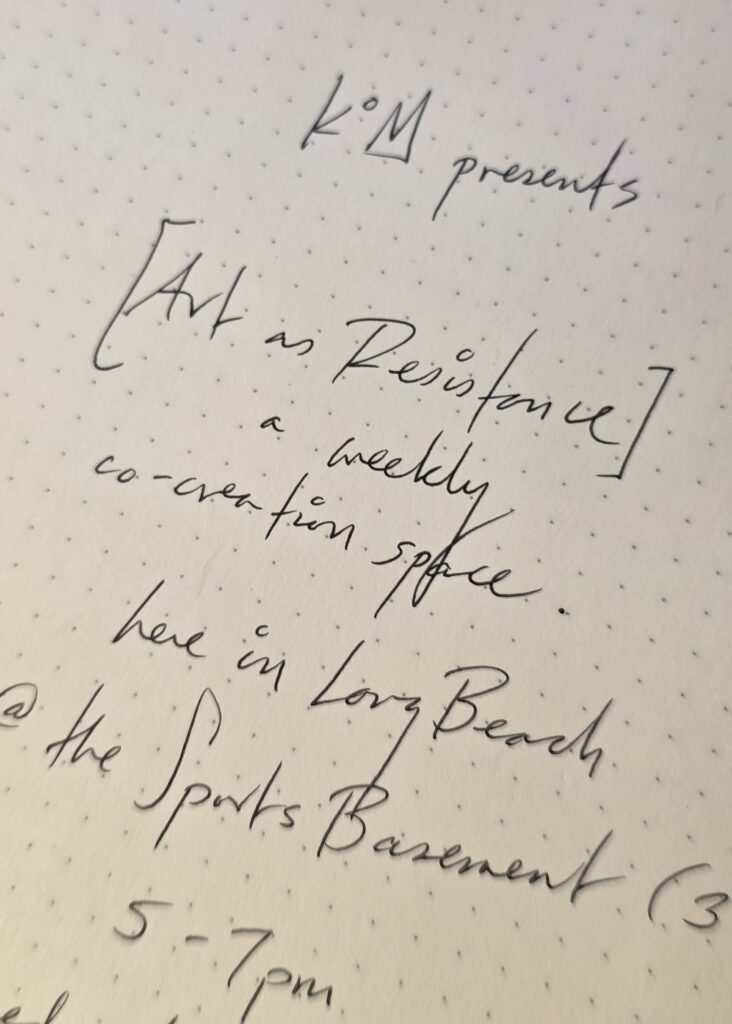 K°M presents
[Art as Resistance]
a weekly
co-creation space.
here in Long Beach
@ the Sports Basement (3
5-7pm